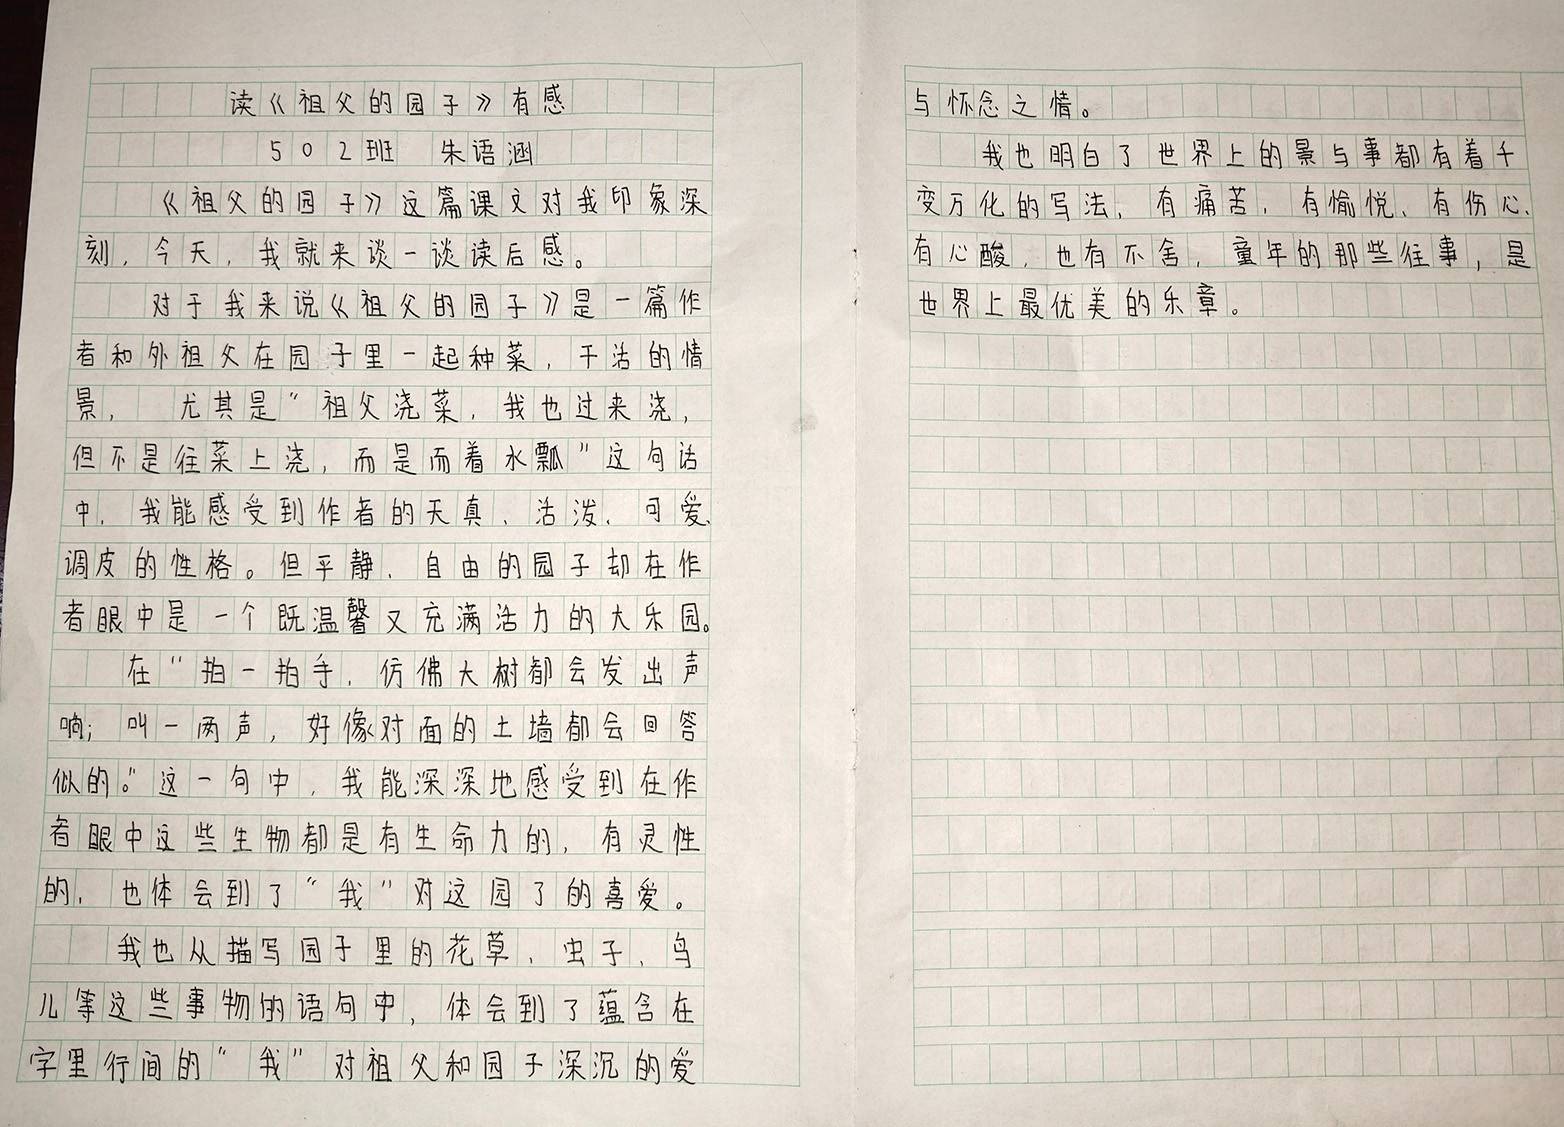 读《祖父的园子》有感
502班 朱语涵
《祖父的园子》这篇课文对我印象深
刻，今天，我就来谈一谈读后感。
对于我来说《祖父的园子》是一篇作
者和外祖父在园子里一起种菜，干活的情
景， 尤其是“祖父浇菜，我也过来浇，
但不是往菜上浇，而是而着水瓢”这句话
中，我能感受到作者的天真、活泼、可爱、
调皮的性格。但平静、自由的园子却在作
者眼中是一个既温馨又充满活力的大乐园。
在“拍一拍手，仿佛大树都会发出声
响；叫一两声，好像对面的土墙都会回答
似的。”这一句中，我能深深地感受到在作
者眼中这些生物都是有生命力的，有灵性
的，也体会到了“我”对这园了的喜爱。
我也从描写园子里的花草、虫子、鸟
儿等这些事物的语句中，体会到了蕴含在
字里行间的“我”对祖父和园子深沉的爱
与怀念之情。
我也明白了世界上的景与事都有着千
变万化的写法，有痛苦，有愉悦、有伤心、
有心酸，也有不舍，童年的那些往事，是
世界上最优美的乐章。